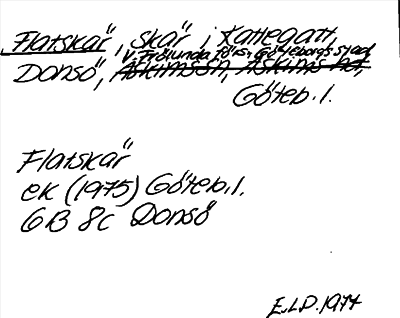 Flatskär, skär i Kattegatt,
V. Frölunda förs., Göteborgs stad
Donsö, Askims sn, Askims hd,
Göteb. l.
Flatskär
ek (1975) Göteb. l.
6B 8c Donsö
E.L.D. 1977